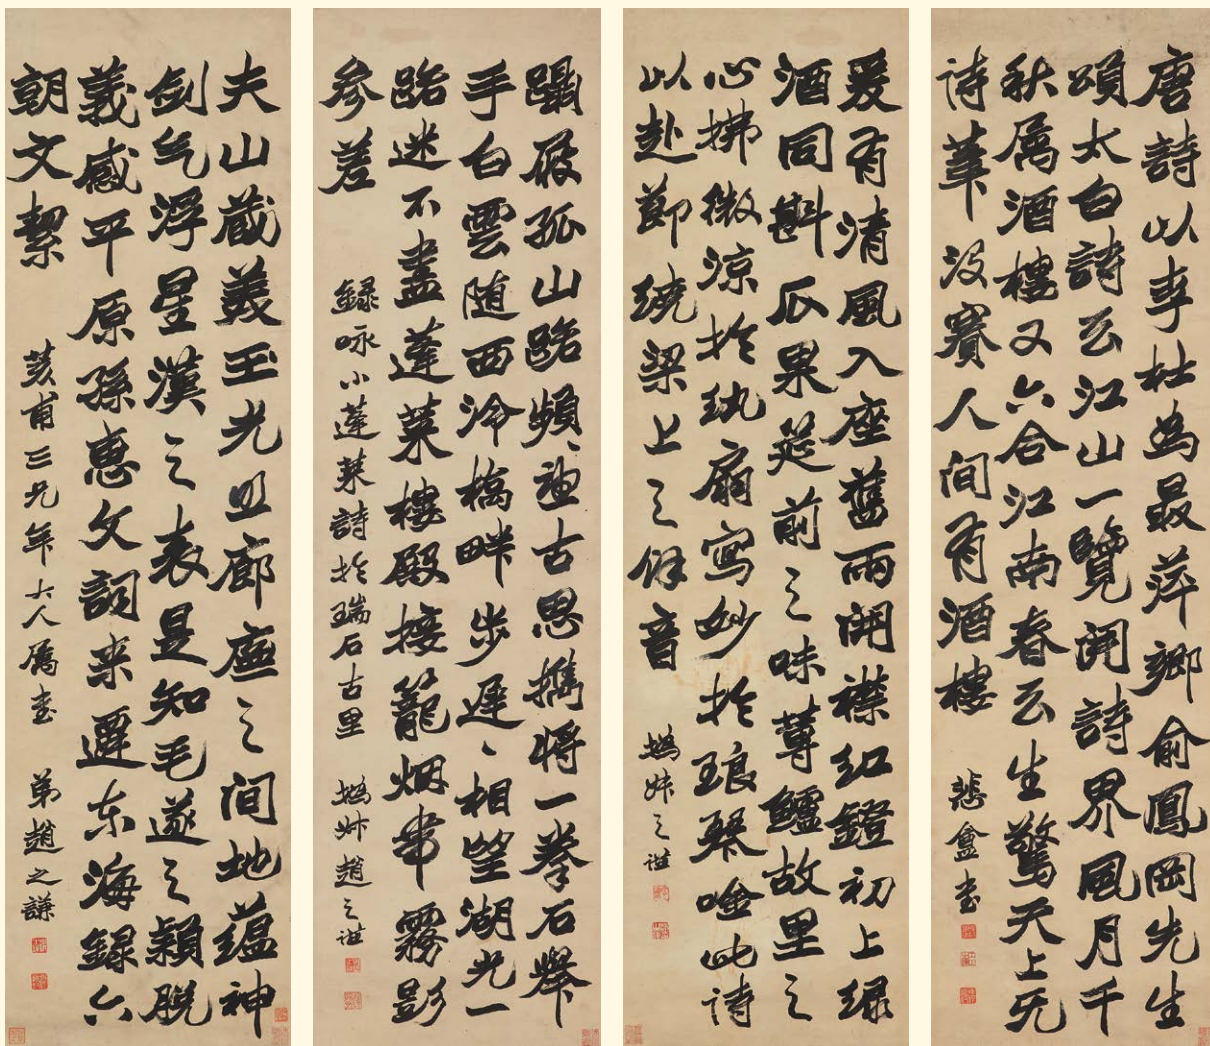 唐詩以李杜為最萍鄉俞鳳岡先生
頌太白詩云江山一覽開詩界風月千
秋屬酒樓又六合江南春云生驚天上无
詩筆沒賽人間有酒樓
悲盦書
爰有清風入座舊雨開襟紅鐙初上綠
酒同斟瓜果筵前之味蓴鱸故里之
心拂微涼於紈扇寫妙於琅琴唫此詩
以赴節繞梁上之餘音
撝叔之謙
躡屐孤山路頻古思攜將一拳石舉
手白雲隨西泠橋畔步遲〻相望湖光一
路迷不盡蓬萊樓殿接籠烟帶霧影
參差
錄咏小蓬萊詩於瑞石古里
撝叔趙之謙
夫山藏美玉光照廊廡之間地蘊神
劍气浮星漢之表是知毛遂之穎脫
義感平原孫惠文詞來遷东海錄六
朝文絜
甫三兄年大人屬書
弟趙之謙